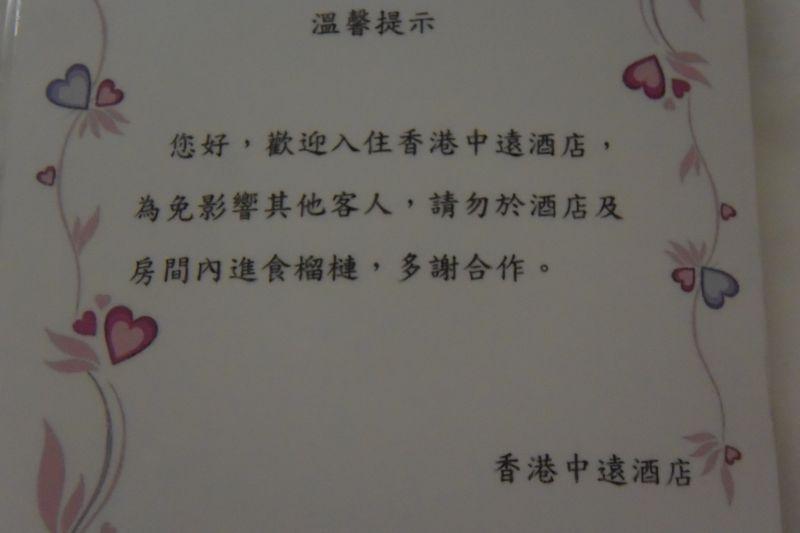 溫馨提示
您好，歡迎入住香港中遠酒店，
為免影響其他客人，請勿於酒店及
房間內進食榴槤，多謝合作。
香港中遠酒店